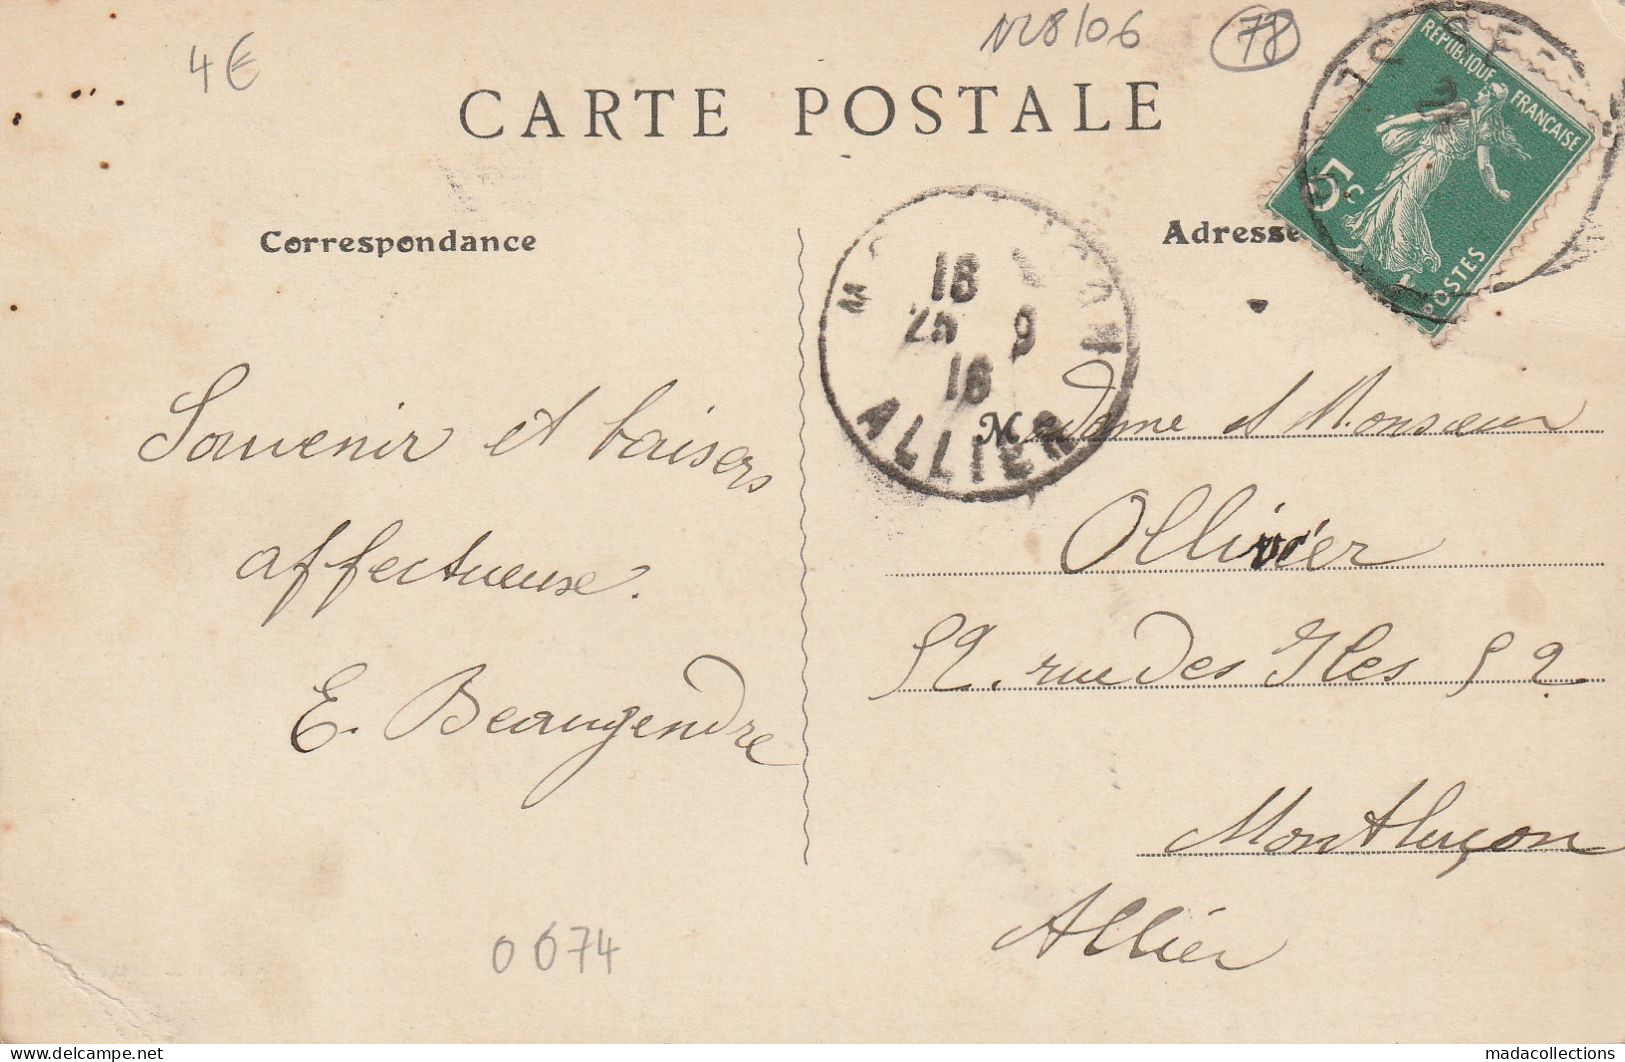 4€
78
CARTE POSTALE
RÉPUBLIQUE FRANÇAISE
5c
POSTES
Correspondance
Adresse
18
25 9
16
ALLIER
Souvenir et baisers
affectueuse.
E. Beaugendre
0674
Madame et Monsieur
Ollivier
52. rue des Iles 52
Montluçon
Allier
madacollections